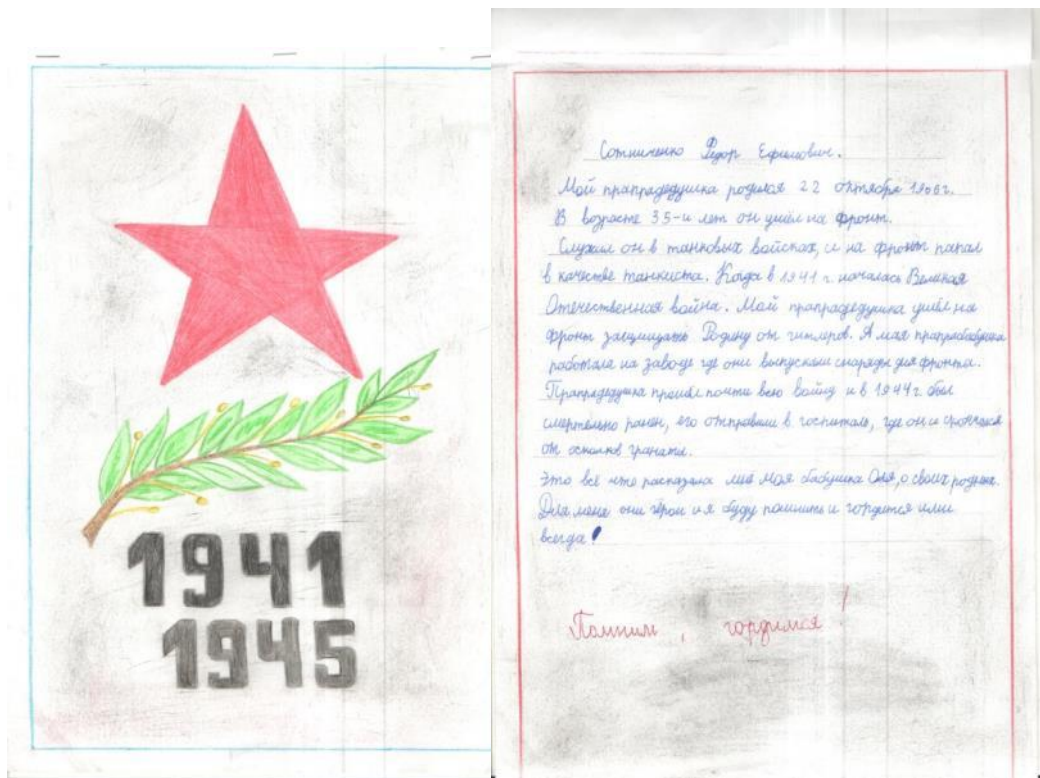 1941
1945
Сотниченко Федор Ефимович.
Мой прапрадедушка родился 22 октября 1906г.
В возрасте 35-и лет он ушёл на фронт.
Служил он в танковых войсках, и на фронт папал
в качестве танкиста. Когда в 1941 г. началась Великая
Отечественная война. Мой прапрадедушка ушёл на
фронт защищать Родину от гитлеров. А мая прапрабабушка
работала на заводе где они выпускали снаряды для фронта.
Прапрадедушка прошёл почти всю войну и в 1944г. был
смертельно ранен, его отправили в госпиталь, где он и скончался
от осколков гранаты.
Это всё мне расказала моя бабушка Оля, о своих родных.
Для меня они герои и я буду помнить и гордится ими
всегда!
Помним, гордимся!